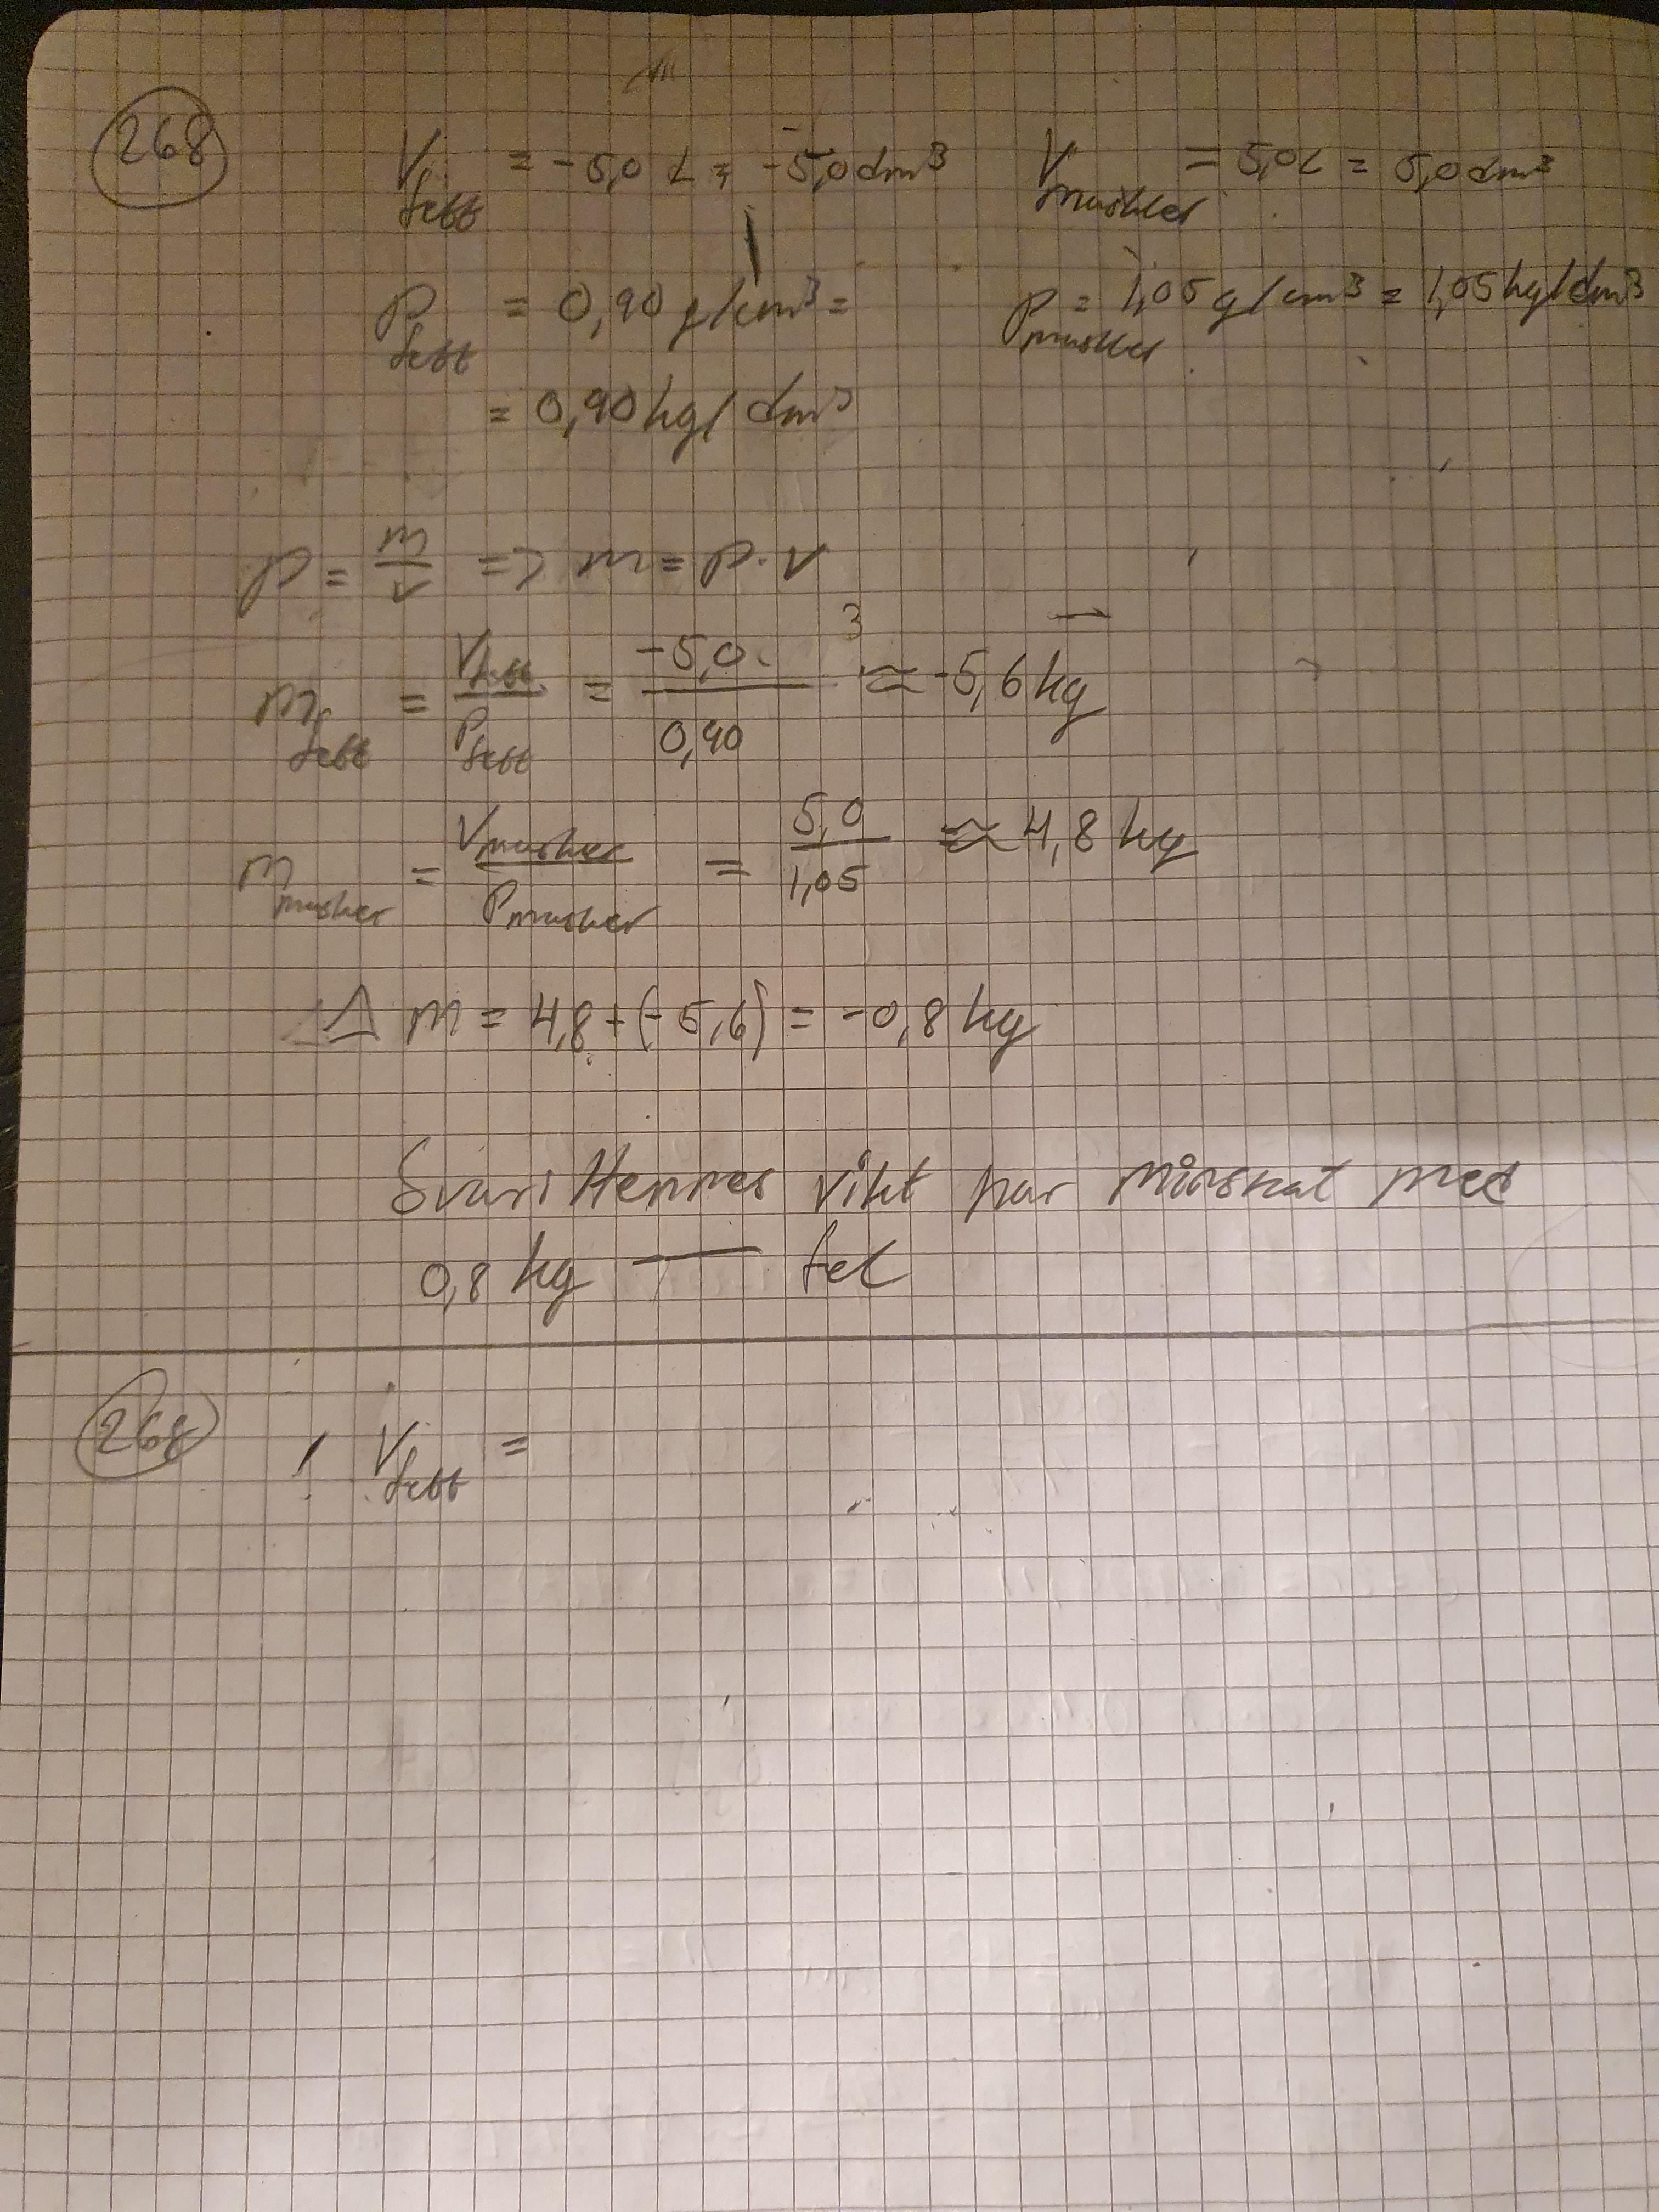 268
V fett = -5,0 L = -5,0 dm³ V muskler = 5,0L = 5,0 dm³
ρ fett = 0,90 g/cm³ = ρ muskler = 1,05 g/cm³ = 1,05 kg/dm³
= 0,90 kg/dm³
ρ = m/V => m = ρ · V
m fett = V fett / ρ fett = -5,0 / 0,90 ≈ -5,6 kg
m muskler = V muskler / ρ muskler = 5,0 / 1,05 ≈ 4,8 kg
Δ m = 4,8 + (-5,6) = -0,8 kg
Svar: Hennes vikt har minskat med
0,8 kg — fel
268) V fett =